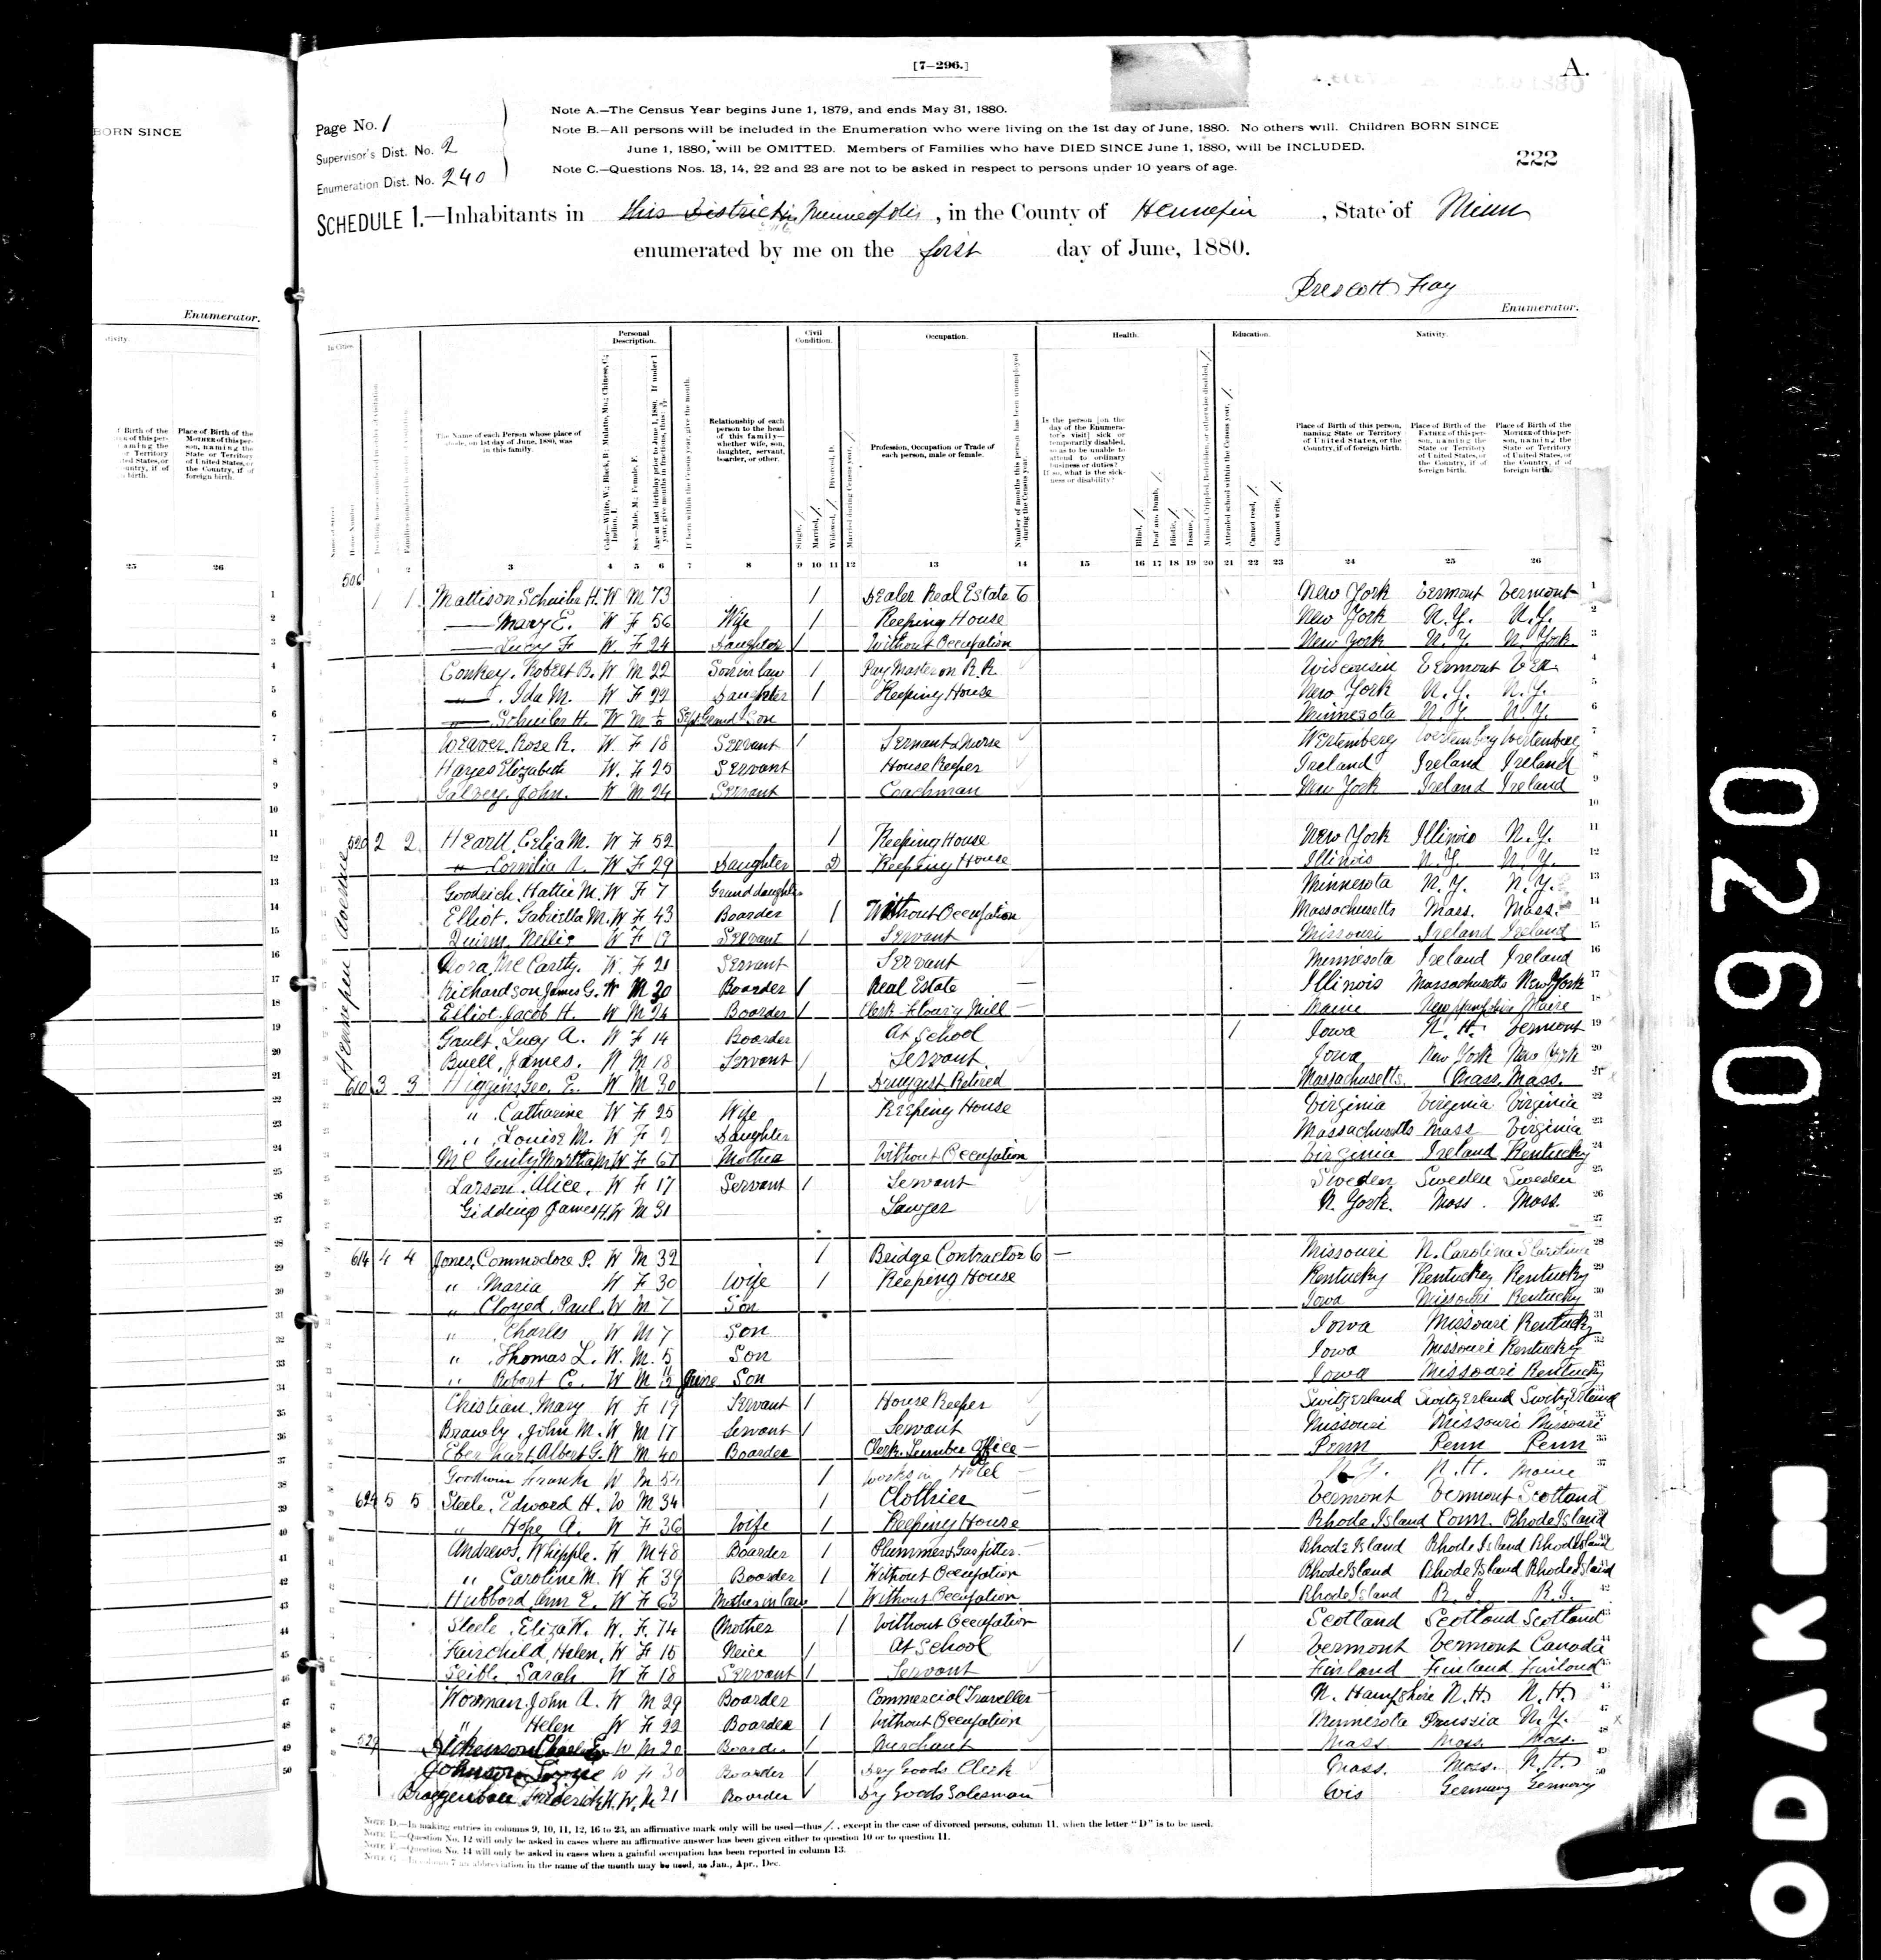 [7-296.]
A.
Page No. 1
Supervisor's Dist. No. 2
Enumeration Dist. No. 240
Note A.—The Census Year begins June 1, 1879, and ends May 31, 1880.
Note B.—All persons will be included in the Enumeration who were living on the 1st day of June, 1880. No others will. Children BORN SINCE
June 1, 1880, will be OMITTED. Members of Families who have DIED SINCE June 1, 1880, will be INCLUDED.
Note C.—Questions Nos. 13, 14, 22 and 23 are not to be asked in respect to persons under 10 years of age.
222
SCHEDULE 1.—Inhabitants in Minneapolis, in the County of Hennepin, State of Minn
enumerated by me on the first day of June, 1880.
Prescott Fay
Enumerator.
BORN SINCE
Enumerator.
Personal Description.
Civil Condition.
Occupation.
Health.
Education.
Nativity.
The Name of each Person whose place of abode, on 1st day of June, 1880, was in this family.
Relationship of each person to the head of this family—whether wife, son, daughter, servant, boarder, or other.
Profession, Occupation or Trade of each person, male or female.
Place of Birth of this person, naming State or Territory of United States, or the Country, if of foreign birth.
Place of Birth of the FATHER of this person, naming the State or Territory of United States, or the Country, if of foreign birth.
Place of Birth of the MOTHER of this person, naming the State or Territory of United States, or the Country, if of foreign birth.
Hennepin Avenue
506 1 1 Mattison, Schuiler H. W M 73 / Dealer Real Estate 6 New York Vermont Vermont
— Mary E. W F 56 Wife / Keeping House New York N.Y. N.Y.
— Lucy F W F 24 Daughter / Without Occupation New York N.Y. N. York
Conkey, Robert B. W M 22 Son in law / Pay Master on R.R. Wisconsin Vermont
— Ida M. W F 22 Daughter / Keeping House New York N.Y. N.Y.
— Schuiler H. W M Grand Son Minnesota N.Y. N.Y.
Weaver, Rose R. W F 18 Servant / Servant & Nurse Wertemberg Wertemberg Wertemberg
Hayes Elizabeth W F 25 Servant House Keeper Ireland Ireland Ireland
Galvey, John. W M 24 Servant Coachman New York Ireland Ireland
520 2 2 Heartt, Celia M. W F 52 / Keeping House New York Illinois N.Y.
" Cornilia A. W F 29 Daughter D Keeping House Illinois N.Y. N.Y.
Goodrich, Hattie M. W F 7 Granddaughter Minnesota N.Y. N.Y.
Elliot, Gabriella M. W F 43 Boarder / Without Occupation Massachusetts Mass. Mass.
Quinn, Nellie W F 19 Servant / Servant Missouri Ireland Ireland
Nora, McCartty. W F 21 Servant Servant Minnesota Ireland Ireland
Richardson James G. W M 30 Boarder / Real Estate Illinois Massachusetts New York
Elliot, Jacob H. W M 24 Boarder / Clerk Floury Mill Maine New Hampshire Maine
Gault, Lucy A. W F 14 Boarder At School / Iowa N.H. Vermont
Buell, James. W M 18 Servant / Servant Iowa New York New York
610 3 3 Higgins, Geo. E. W M 30 / Druggist Retired Massachusetts Mass. Mass.
" Catharine W F 25 Wife Keeping House Virginia Virginia Virginia
" Louise M. W F 2 Daughter Massachusetts Mass Virginia
Mother Without Occupation Virginia Ireland Kentucky
Larson, Alice, W F 17 Servant / Servant Sweden Sweden Sweden
Gidding James H. W M 31 Lawyer N. York. Mass. Mass.
614 4 4 Jones, Commodore P. W M 32 / Bridge Contractor 6 — Missouri N. Carolina S Carolina
" Maria W F 30 Wife / Keeping House Kentucky Kentucky Kentucky
" Cloyed, Paul, W M 7 Son Iowa Missouri Kentucky
" Charles W M 7 Son Iowa Missouri Kentucky
" Thomas L. W. M. 5 Son Iowa Missouri Kentucky
" Robert C. W M June Son Iowa Missouri Kentucky
Chistian, Mary W F 19 Servant / House Keeper Switzerland Switzerland Switzerland
Brawly, John M. W M 17 Servant / Servant Missouri Missouri Missouri
Eberhart, Albert G. W M 40 Boarder Clerk Lumber Office — Penn Penn Penn
Goodwin Frank W M 54 / Works in Hotel N.Y. N.H. Maine
624 5 5 Steele, Edward H. W M 34 / Clothier Vermont Vermont Scotland
" Hope A. W F 36 Wife / Keeping House Rhode Island Conn. Rhode Island
Andrews, Whipple. W M 48 Boarder / Plummer & Gas fitter. Rhode Island Rhode Island Rhode Island
" Caroline M. W F 39 Boarder / Without Occupation Rhode Island Rhode Island Rhode Island
Hubbard, Ann E. W F 63 Mother in law / Without Occupation Rhode Island R.I. R.I.
Steele, Eliza K. W. F. 74 Mother / Without Occupation Scotland Scotland Scotland
Fairchild, Helen, W F 15 Neice / At School / Vermont Vermont Canada
Seibl, Sarah W F 18 Servant / Servant Finland Finland Finland
Worman, John A. W M 29 Boarder Commercial Traveller N. Hampshire N.H. N.H.
" Helen W F 22 Boarder / Without Occupation Minnesota Prussia N.Y.
529 Dickenson W M 20 Boarder / Merchant Mass. Mass. Mass.
Johnson W F 30 Boarder / Dry Goods Clerk Mass. Mass. N.H.
Frederick H. W. M 21 Boarder / Dry Goods Salesman Wis Germany Germany
Note D.—In making entries in columns 9, 10, 11, 12, 16 to 23, an affirmative mark only will be used—thus /, except in the case of divorced persons, column 11, when the letter "D" is to be used.
Note E.—Question No. 12 will only be asked in cases where an affirmative answer has been given either to question 10 or to question 11.
Note F.—Question No. 14 will only be asked in cases when a gainful occupation has been reported in column 13.
Note G.—In column 7 an abbreviation in the name of the month may be used, as Jan., Apr., Dec.
0920
ODAK